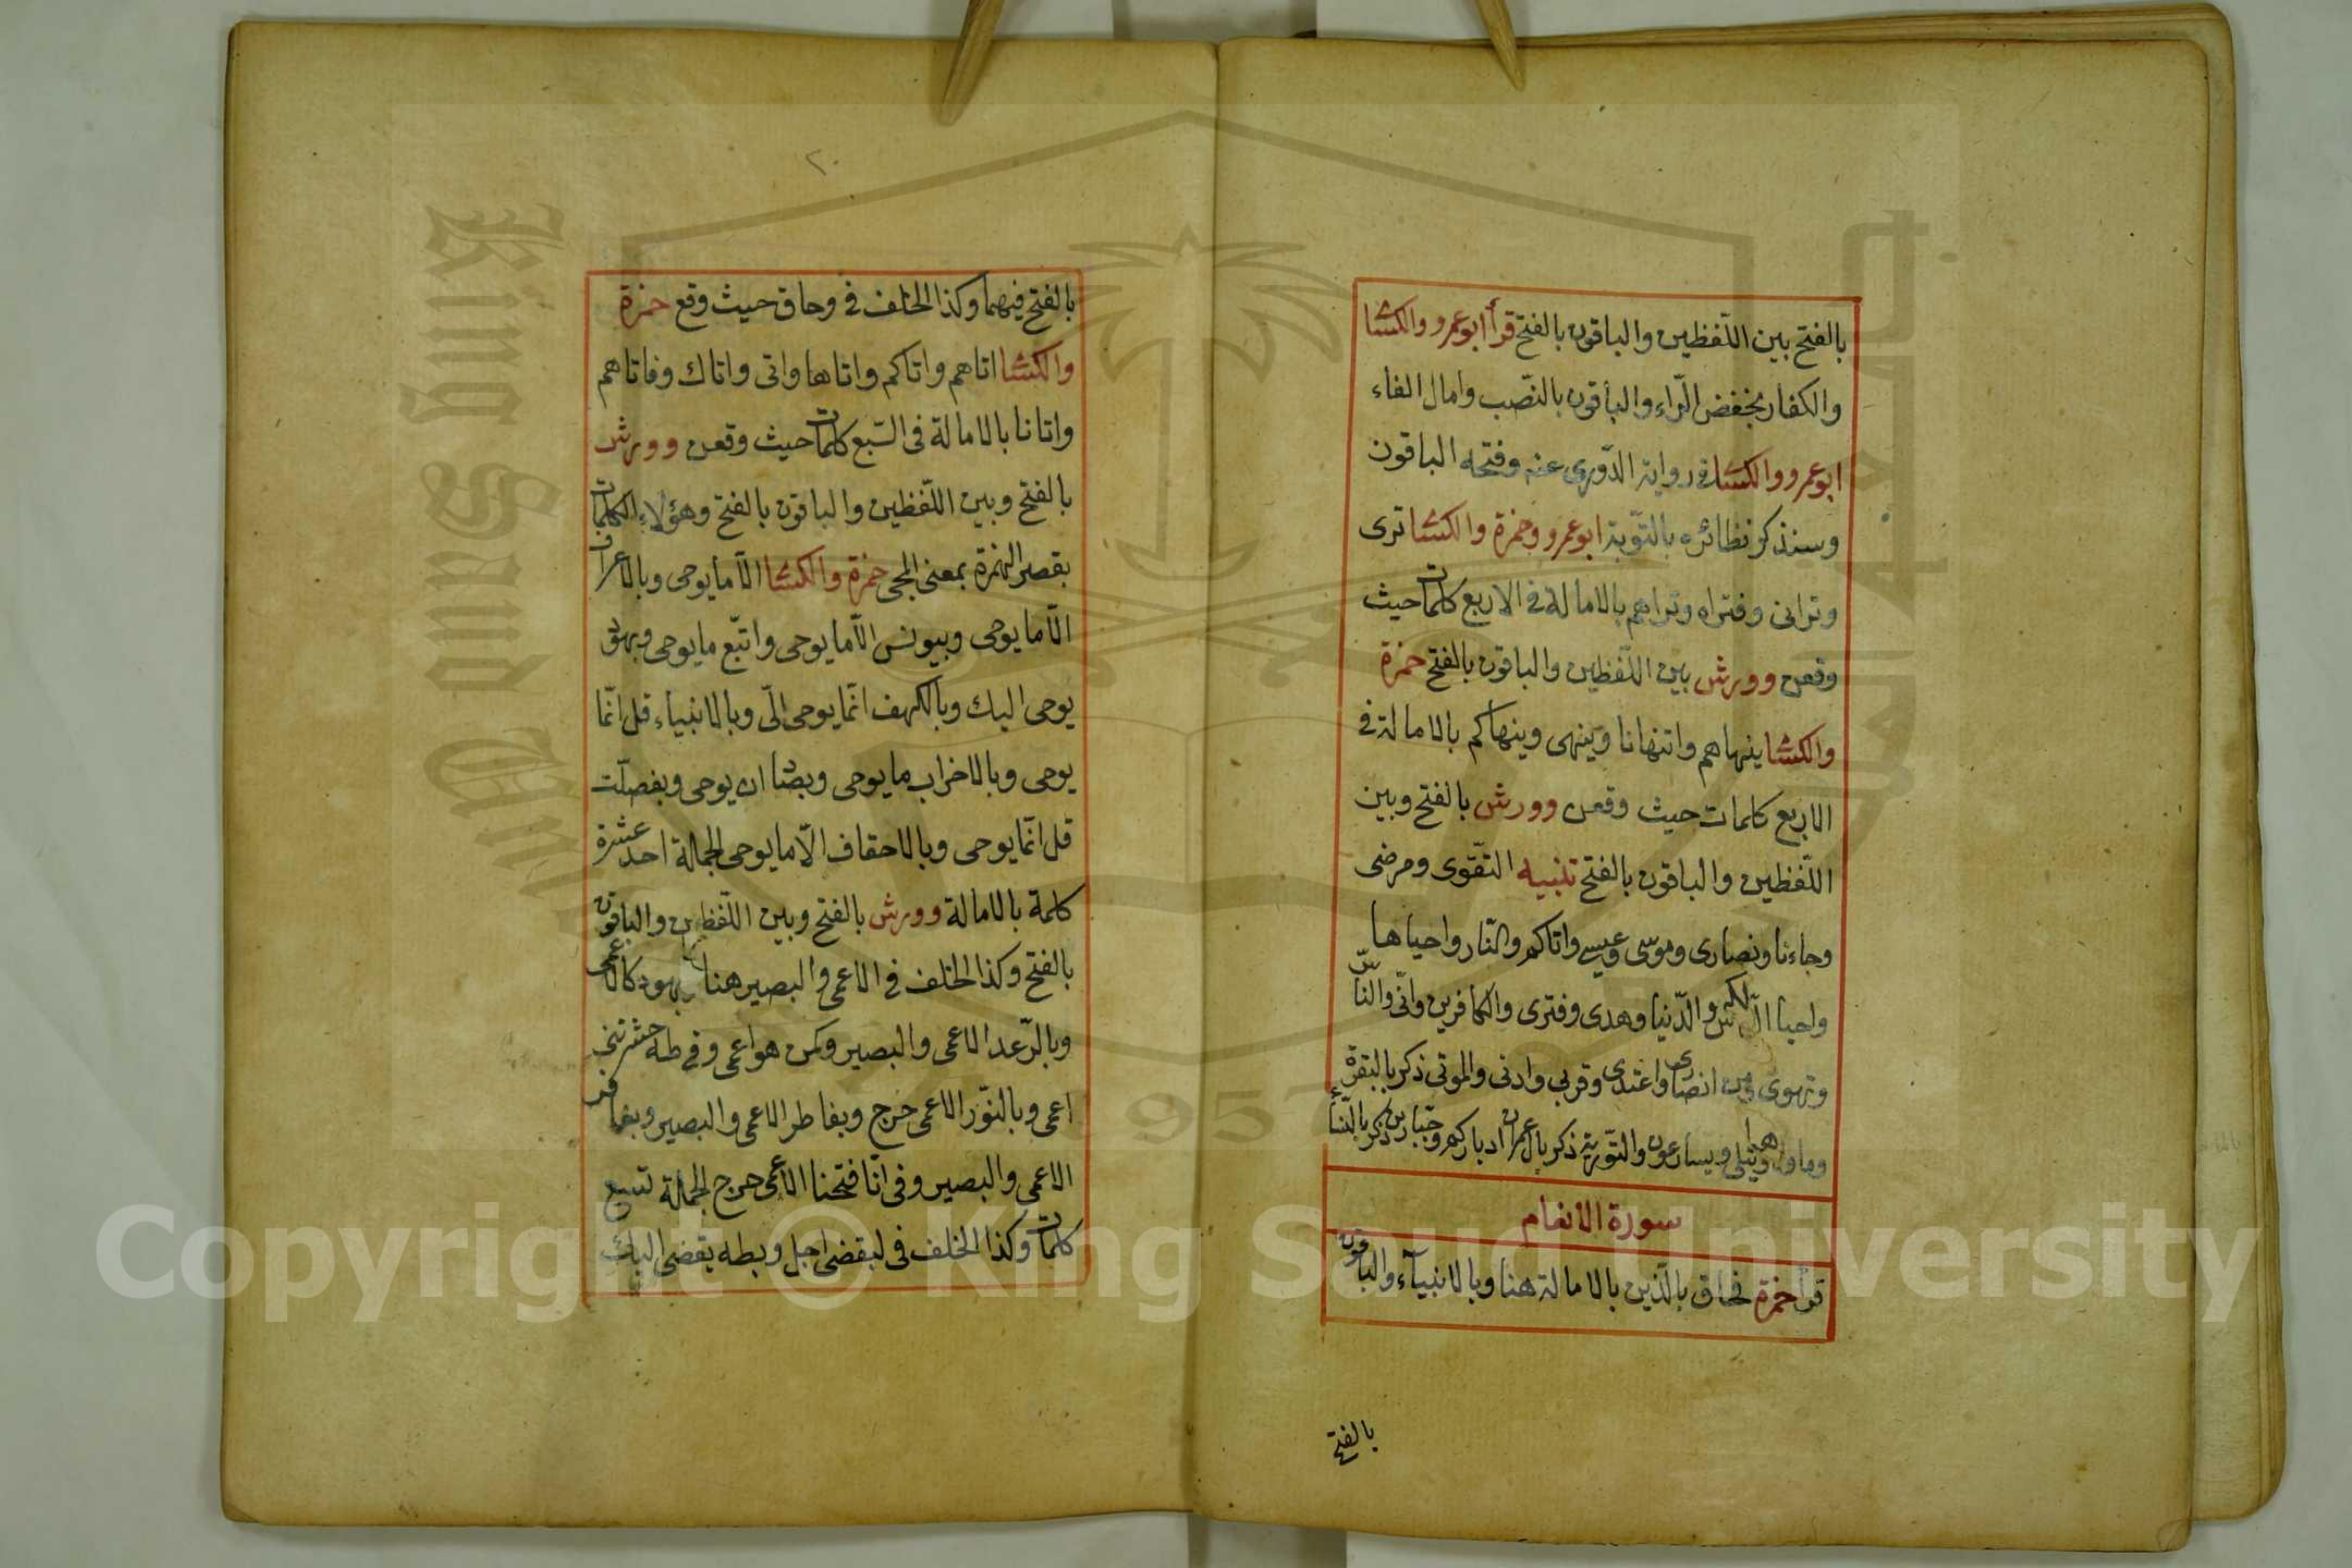 بالفتح بين اللّفظين والباقون بالفتح قرأ ابوعمرو والكسّا
والكفار بخفض الرّاء والباقون بالنّصب وامال الفاء
ابوعمرو والكسّا فى رواية الدّورى عنه وفتحه الباقون
وسنذكر نظائره بالتّوبة ابوعمرو وحمزة والكسّا ترى
وترانى وفتراه وتراهم بالامالة فى الاربع كلمات حيث
وقعن وورش بين اللّفظين والباقون بالفتح حمزة
والكسّا ينهاهم واتنهانا وينهى وينهاكم بالامالة فى
الاربع كلمات حيث وقعن وورش بالفتح وبين
اللّفظين والباقون بالفتح تنبيه التّقوى ومرضى
وجاءنا ونصارى وموسى وعيسى واتاكم والنّار واحياها
واحيا النّاس والدّنيا وهدى وفترى والكافرين وانّى والنّاس
وتهوى من انصارى واعتدى وقربى وادنى والموتى ذكر بالبقرة
وماواه ويتلى ويسارعون والتّورية ذكر بال عمران ادباركم وجبّارين ذكر بالنّساء
سورة الانعام
قرأ حمزة فحاق بالّذين بالامالة هنا وبالانبيآء والباقون
بالفتح
٢٠
بالفتح فيهما وكذا الخلف فى وحاق حيث وقع حمزة
والكسّا اتاهم واتاكم واتاها واتى واتاك وفاتاهم
واتانا بالامالة فى السّبع كلمات حيث وقعن وورش
بالفتح وبين اللّفظين والباقون بالفتح وهؤلاء الكلمات
بقصر الهمزة بمعنى المجى حمزة والكسّا الّا ما يوحى وبالاعراف
الّا ما يوحى وبيونس الّا ما يوحى واتّبع ما يوحى وبهود
يوحى اليك وبالكهف انّما يوحى الىّ وبالانبياء قل انّما
يوحى وبالاحزاب ما يوحى وبصّ ان يوحى وبفصلت
قل انّما يوحى وبالاحقاف الّا ما يوحى الجملة احد عشرة
كلمة بالامالة وورش بالفتح وبين اللّفظين والباقون
بالفتح وكذا الخلف فى الاعمى والبصير هنا وبهود كالاعمى
وبالرّعد الاعمى والبصير وكمن هو اعمى وفى طه حشرتنى
اعمى وبالنّور الاعمى حرج وبفاطر الاعمى والبصير وبغافر
الاعمى والبصير وفى انّا فتحنا الاعمى حرج الجملة تسع
كلمات وكذا الخلف فى ليقضى اجل وبطه يقضى اليك